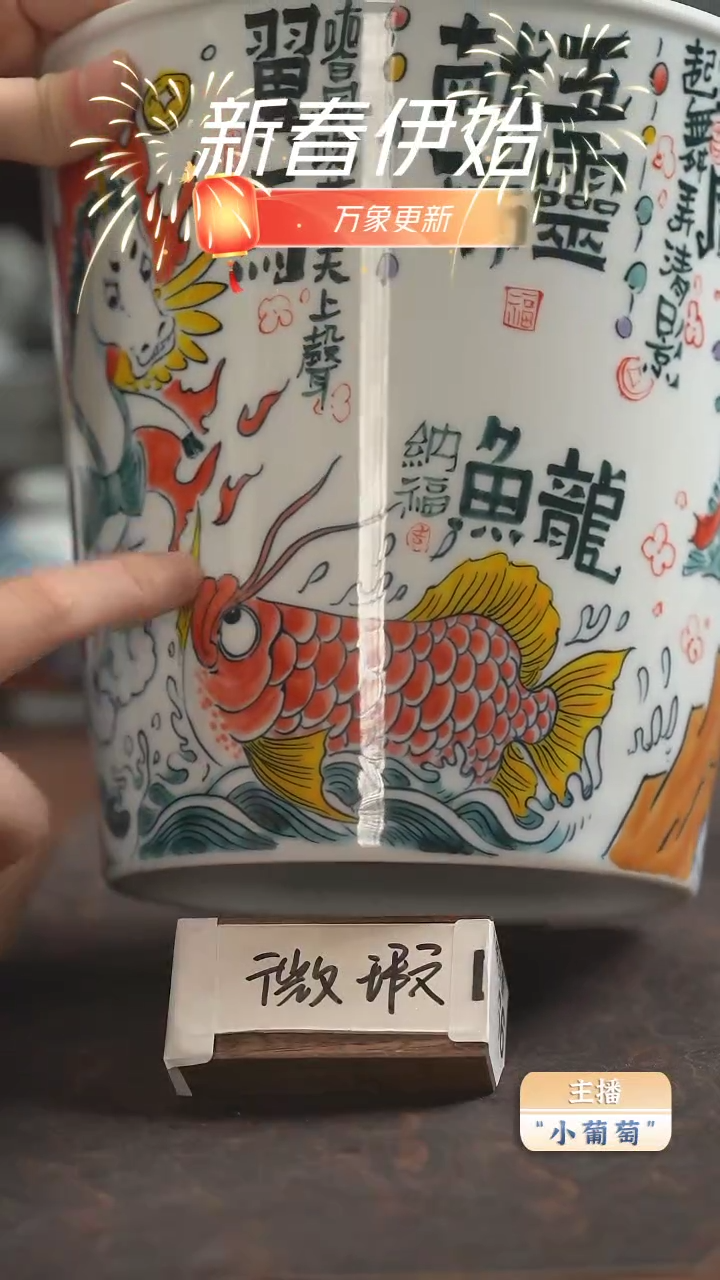 新春伊始
万象更新
天上聲
起舞弄清影
福
納福
吉
魚龍
微瑕
主播
“小葡萄”